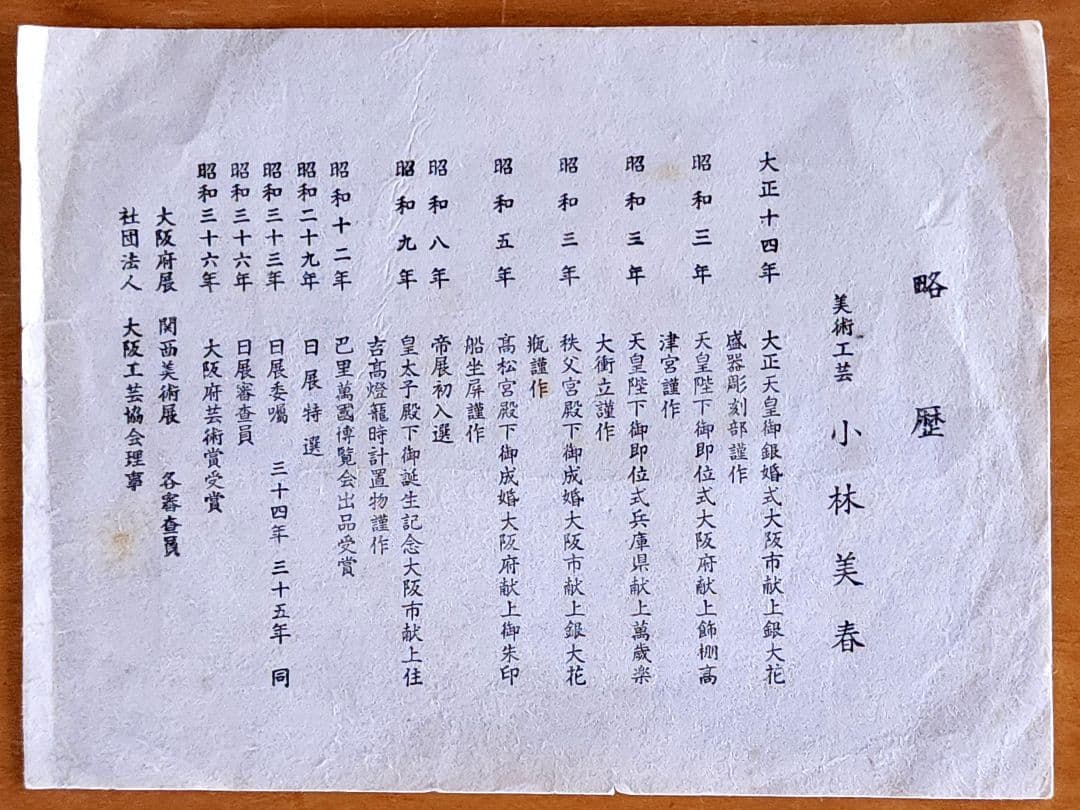 略歴
美術工芸 小林美春
大正十四年 大正天皇御銀婚式大阪市献上銀大花
盛器彫刻部謹作
昭和三年 天皇陛下御即位式大阪府献上飾棚高
津宮謹作
昭和三年 天皇陛下御即位式兵庫県献上萬歳楽
大衝立謹作
昭和三年 秩父宮殿下御成婚大阪市献上銀大花
瓶謹作
昭和五年 高松宮殿下御成婚大阪府献上御朱印
船坐屏謹作
昭和八年 帝展初入選
昭和九年 皇太子殿下御誕生記念大阪市献上住
吉高燈籠時計置物謹作
昭和十二年 巴里萬國博覧会出品受賞
昭和二十九年 日展特選
昭和三十三年 日展委嘱 三十四年 三十五年 同
昭和三十六年 日展審査員
昭和三十六年 大阪府芸術賞受賞
大阪府展 関西美術展 各審査員
社団法人 大阪工芸協会理事